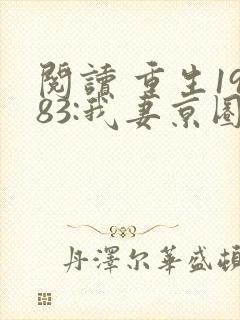 閱讀 重生19
83:我妻京圈
丹澤尔華盛頓